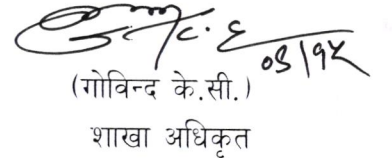 ०३/१५
(गोविन्द के.सी.)
शाखा अधिकृत